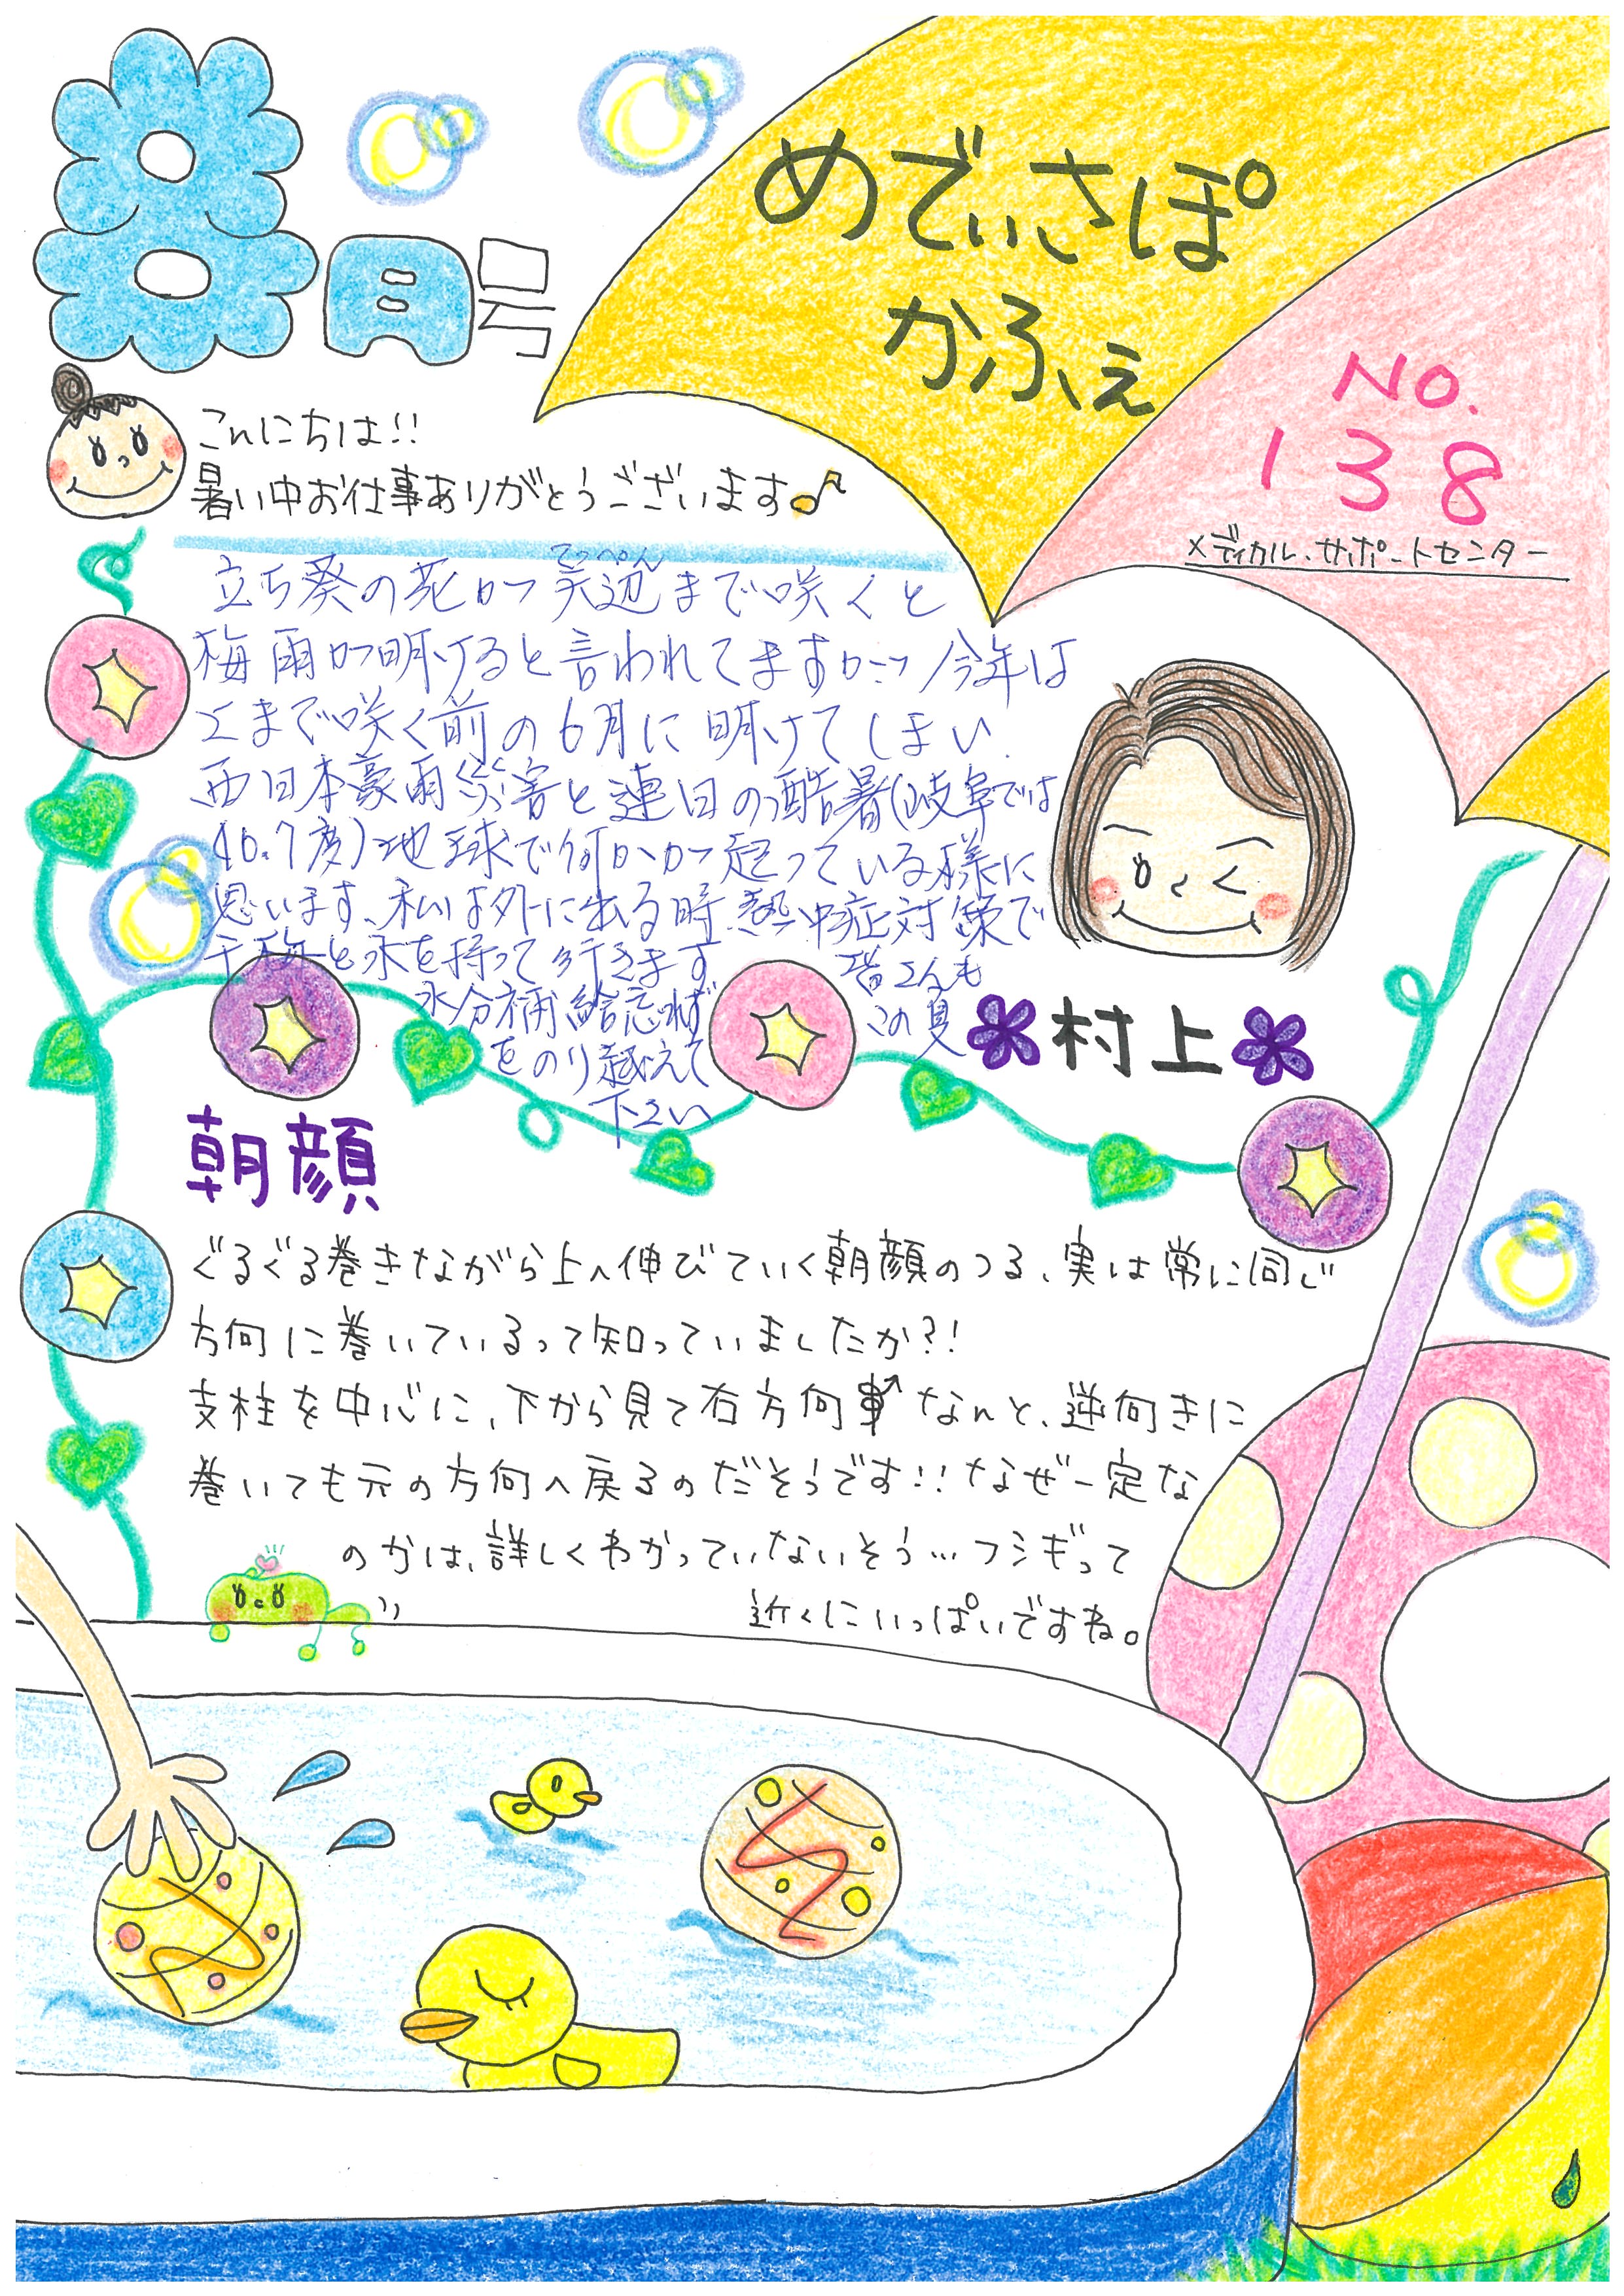 8月号
めでぃさぽ
かふぇ
No.
138
メディカル・サポートセンター
こんにちは!!
暑い中お仕事ありがとうございます♪
てっぺん
立ち葵の花が天辺まで咲くと
梅雨が明けると言われてますが、今年は
上まで咲く前の6月に明けてしまい、
西日本豪雨災害と連日の酷暑(岐阜では
40.7度)地球で何かが起っている様に
思います、私は外に出る時、熱中症対策で
干梅と水を持って行きます
皆さんも
水分補給忘れず
この夏
をのり越えて
下さい
村上
朝顔
ぐるぐる巻きながら上へ伸びていく朝顔のつる、実は常に同じ
方向に巻いているって知っていましたか?!
支柱を中心に、下から見て右方向 なんと、逆向きに
巻いても元の方向へ戻るのだそうです!!なぜ一定な
のかは、詳しくわかっていないそう…フシギって
近くにいっぱいですね。